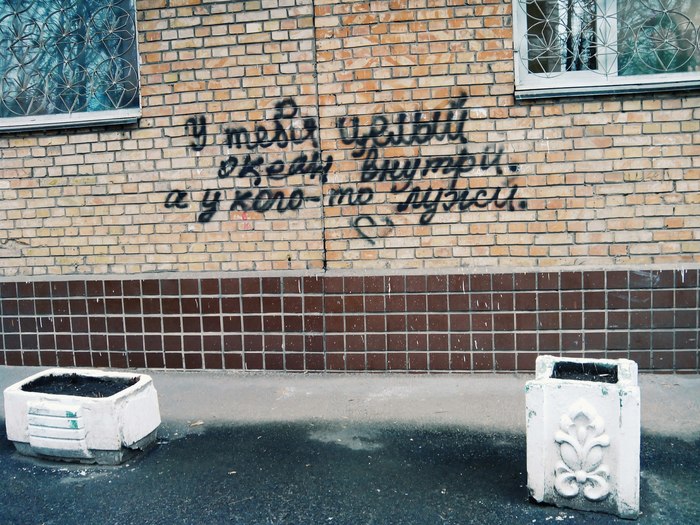 У тебя целый
океан внутри.
а у кого-то лужи.